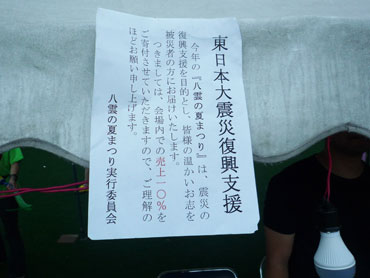 東日本大震災復興支援
今年の『八雲の夏まつり』は、震災の
復興支援を目的とし、皆様の温かいお志を
被災者の方にお届けいたします。
つきましては、会場内での売上一〇％を
ご寄付させていただきますので、ご理解の
ほどお願い申し上げます。
八雲の夏まつり実行委員会